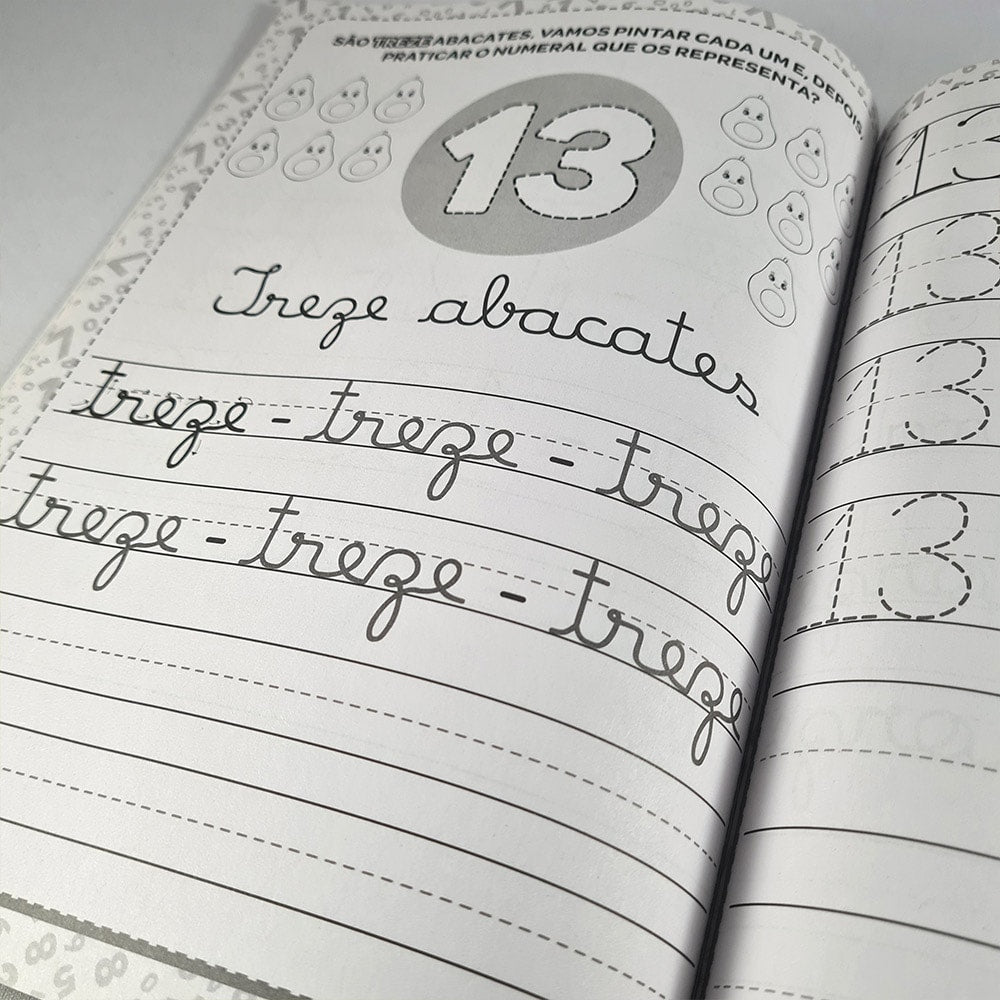 SÃO TREZE ABACATES. VAMOS PINTAR CADA UM E, DEPOIS,
PRATICAR O NUMERAL QUE OS REPRESENTA?
13
Treze abacates
treze - treze - treze
treze - treze - treze
13
13
13
13